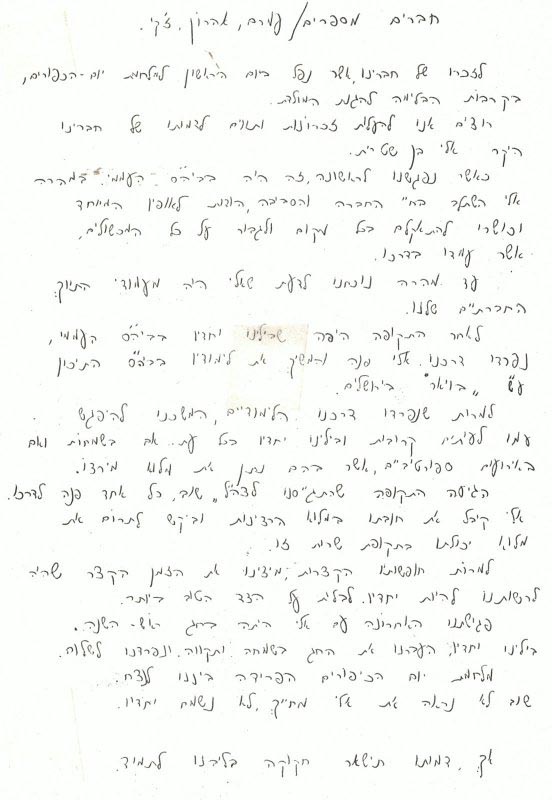 חברים מספרים/ עמרם, אהרון, צ'קי.
לזכרו של חברינו, אשר נפל ביום הראשון למלחמת יום-הכפורים,
בקרבות הבלימה להגנת המולדת.
רוצים אנו להעלות זכרונות ותוים לדמותו של חברינו
היקר אלי בן שטרית.
כאשר נפגשנו לראשונה, זה היה בביה"ס העממי. במהרה
אלי השתלב בח" החברה והסביבה, הודות לאופיו המיוחד
וכושרו להתאקלם בכל מקום ולגבור על כל המכשולים,
אשר עמדו בדרכו.
עד מהרה נוכחנו לדעת שאלי היה מעמודי התווך
החברתיים שלנו.
לאחר התקופה היפה שבילינו יחדיו בביה"ס העממי,
נפרדו דרכנו. אלי פנה והמשיך את לימודיו בביה"ס התיכון
ע"ש "בויאר" בירושלים.
למרות שנפרדו דרכנו הלימודיים, המשכנו להיפגש
עמו לעיתים קרובות ובילינו יחדיו בכל עת. אם בשמחות ואם
באירועים ספורטיביים, אשר בהם נתן את מלוא מירצו.
הגיעה התקופה שהתגייסנו לצה"ל, שוב, כל אחד פנה לדרכו.
אלי קיבל את חובתו במלוא הרצינות וביקש לתרום את
מלוא יכולתו בתקופת שרות זו.
למרות חופשותיו הקצרות, מיצינו את הזמן הקצר שהיה
לרשותנו להיות יחדיו. לבלות על הצד הטוב ביותר.
פגישתנו האחרונה עם אלי היתה בחג ראש-השנה.
בילינו יחדיו, העברנו את החג בשמחה ותקווה. ונפרדנו לשלום.
מלחמת יום הכיפורים הפרידה ביננו לנצח.
שוב לא נראה את אלי מחייך, לא נשמח יחדיו.
אך, דמותו תישאר חקוקה בליבנו לתמיד.